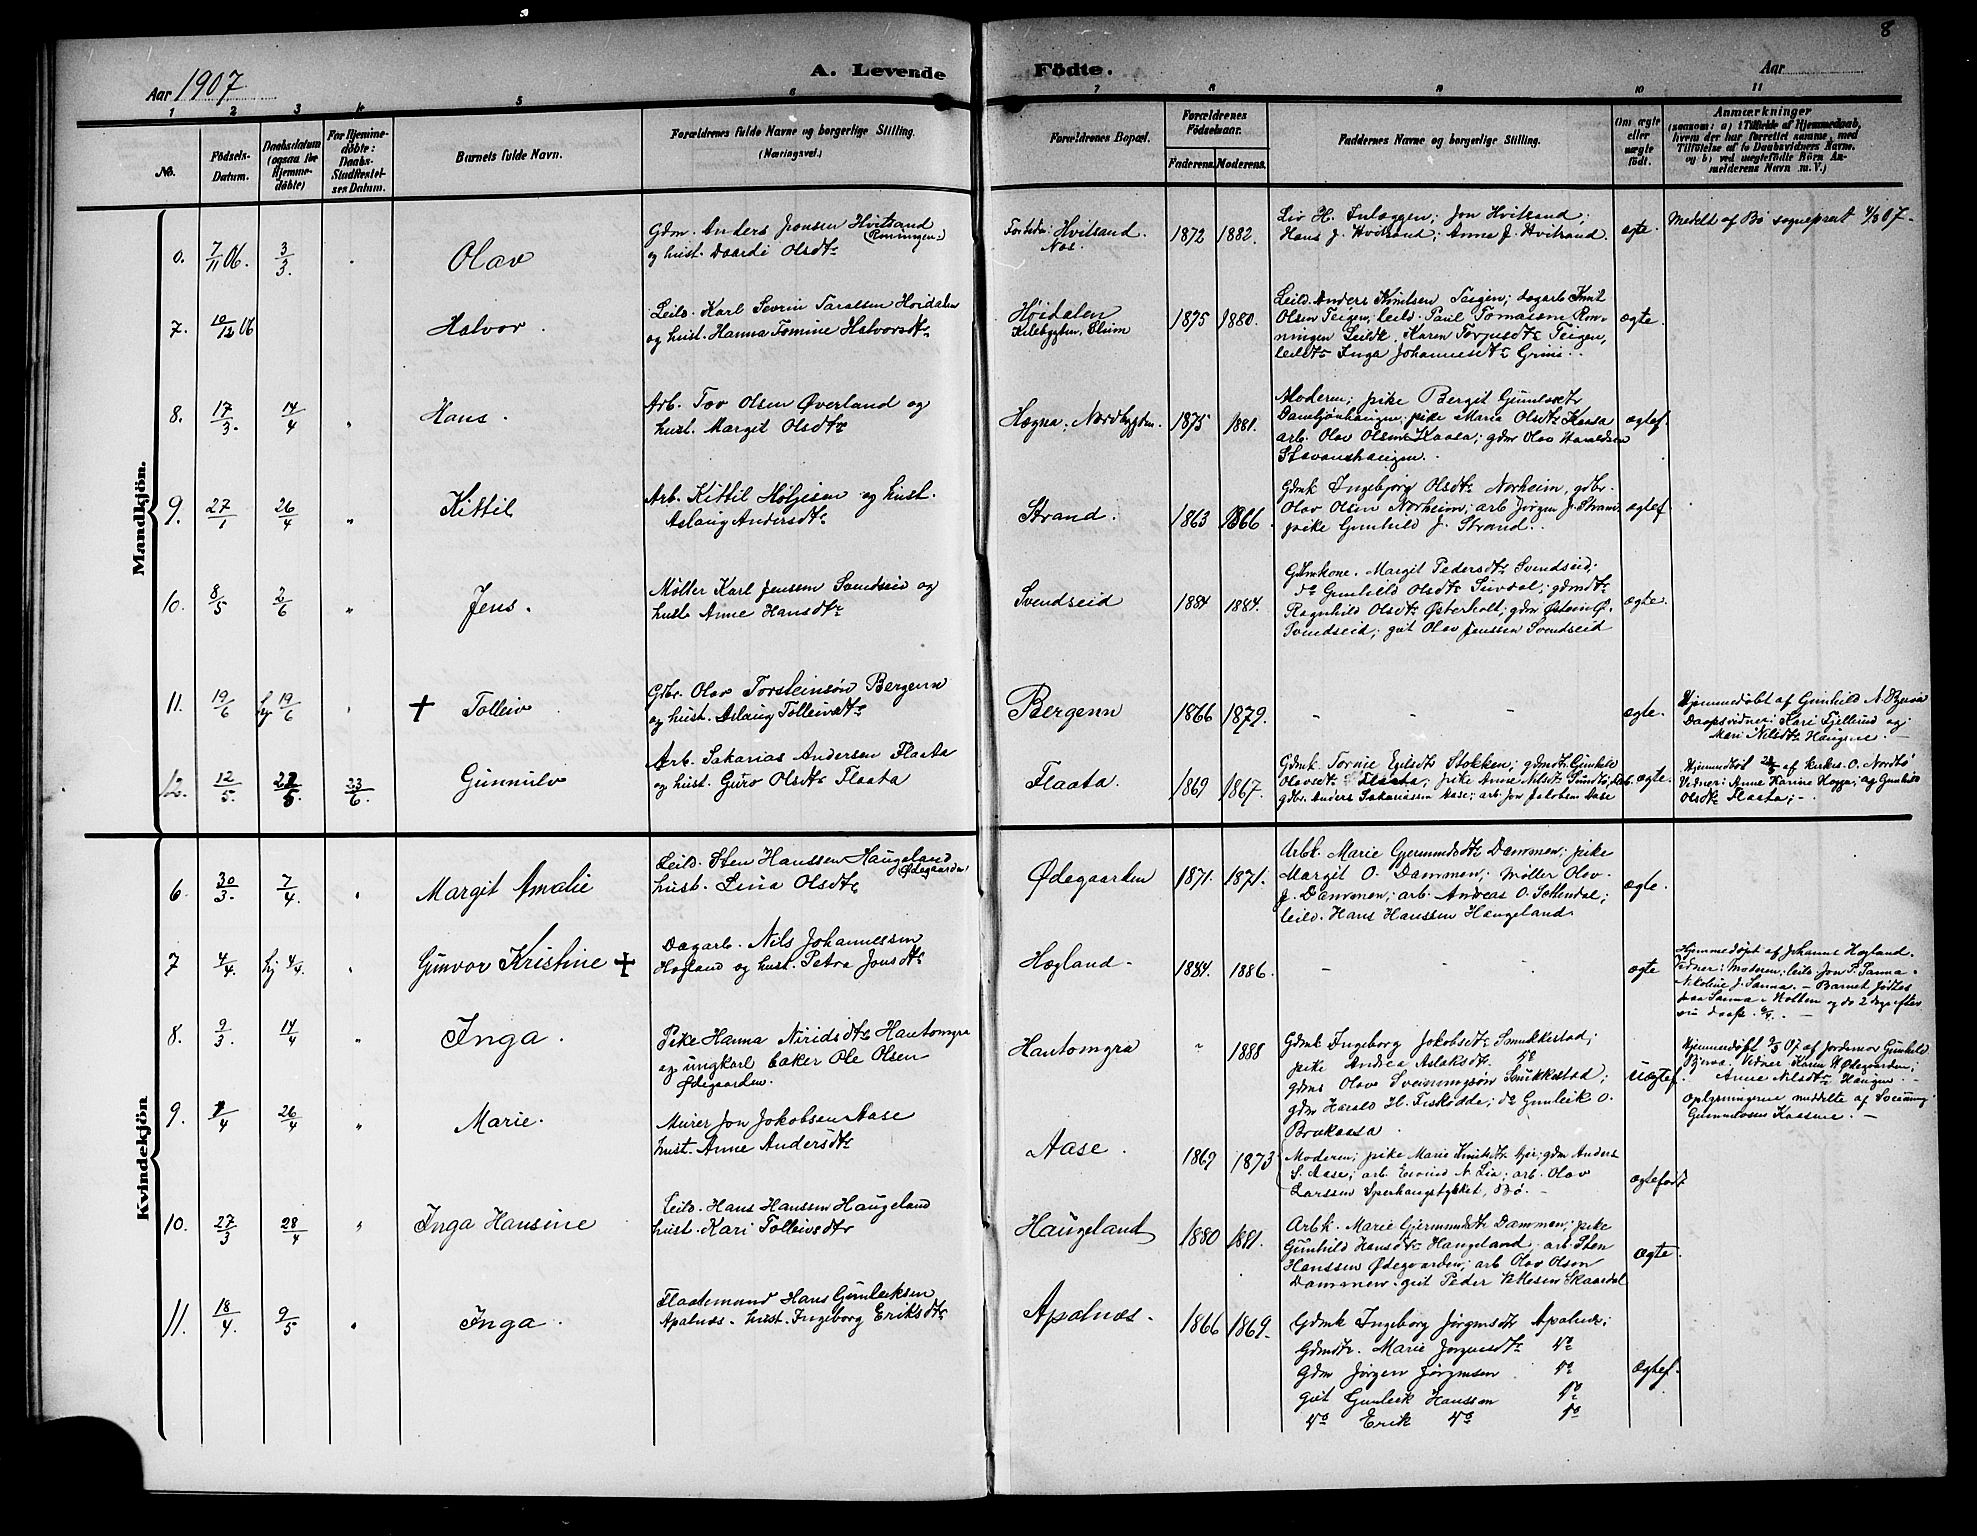 8
Aar 1907
A. Levende Födte.
Aar
1 2 3 4 5 6 7 8 9 10 11
No.
Födsels-Datum.
Daabsdatum (ogsaa for Hjemme-döbte)
For Hjemme-döbte: Daabs-Stadfestel-ses Datum.
Barnets fulde Navn.
Forældrenes fulde Navne og borgerlige Stilling.
(Næringsvei.)
Forældrenes Bopæl.
Forældrenes Födselsaar.
Faderens. Moderens.
Faddernes Navne og borgerlige Stilling.
Om ægte eller uægte födt.
Anmærkninger
(saasom: a) i Tilfælde af Hjemmedaab, hvem der har forrettet samme, med Tilföielse af to Daabsvidners Navne, og b) ved uægtefödte Börn An-melderens Navn m. V.)
Mandkjön.
7/11 06. 3/3 Olav
Gdm. Anders Jonsen Hvitsand
og hust. Daardi Olsdtr
Hvitsand. Nes
1872 1882.
Liv H. Inlæggen; Jon Hvitsand;
Hans J. Hvitsand; Anne J. Hvitsand.
ægte.
Medelt af Bø sogneprest 4/3 07.
7. 10/12 06 Halvor.
Leild. Karl Severin Taralsen Høidalen
og hust. Hanna Tomine Halvorsdtr
Høidalen
1875 1880.
Leild. Anders Knutsen Teigen; dagarb Knut
Olsen Teigen, leild. Paul Tomassen Røn-
ningen Leildk. Karen Torjusdtr Teigen,
leildtr Inga Johannesdtr Grini.
ægte.
8. 17/3 14/4 " Hans.
Arb. Tov Olsen Øverland og
hust. Margit Olsdtr
Hægna, Nordbygden.
1875 1881.
Moderen; pike Bergit Gunleiksdtr
pike Marie Olsdtr Kaasa
arb. Olav Olsen Kaasa; gdm Olav Haraldsen
ægtef.
9. 27/1 26/4 " Kittil
Arb. Kittil Høljesen og hust.
Aslaug Andersdtr
Strand.
1863 1866.
Gdmk Ingebjørg Olsdtr Norheim, gdbr.
Olav Olsen Norheim; arb Jørgen J. Strand
pike Gunhild J. Strand.
ægtef.
10. 8/5 2/6 " Jens.
Møller Karl Jensen Svendseid og
hust. Anne Hansdtr
Svendseid
1884 1884.
Gdmkone. Margit Pedersdtr Svendseid;
do Gunhild Olsdtr Sundal; gdmdtr
Ragnhild Olsdtr Østerholt; gdm Østein O.
Svendseid; gut Olav Jenssen Svendseid
ægte.
11. 19/6 hj 19/6 " + Tolleiv
Gdbr. Olav Torsteinsøn Bergenn
og hust. Aslaug Tolleivsdtr
Bergenn
1866 1879.
- - -
ægte.
Hjemmedøbt af Gunhild N. Bjerva
Daapsvidner: Kari Fjellund og
Mari Nilsdtr Haugene.
12. 12/5. 22/5. 23/6. Gunnulv
Arb. Sakarias Andersen Flaata
og hust. Guro Olsdtr Flaata
Flaata.
1869 1867.
Gdmk. Tornie Egilsdtr Stokken; gdmdtr Gunhild
Olavsdtr Flaata, pike Anne Nilsdtr
gdbr. Anders Sakariassen Aase; arb. Jon Jakobsen Aase
ægte.
Hjemmedøbt 22/5 af kirkes. O. Nordbø
Vidner: Anne Karine og Gunhild
Olsdtr Flaata;-
Kvindekjön
6. 30/3. 7/4. " Margit Amalie
Leild. Sten Hanssen Haugeland Ødegaarden
hust. Lina Olsdtr
Ødegaarden
1871. 1871.
Arbk. Marie Gjermundsdtr Dammen; pike
Margit O. Dammen; møller Olav
J. Dammen; arb. Andreas O. Settendal;
leild. Hans Hanssen Haugeland
ægte.
7 4/4. hj 4/4. " Gunvor Kristine +
Dagarb. Nils Johannessen
Hogland og hust. Petra Jonsdtr
Hægland.
1884. 1886.
- - -
ægte
Hjemmedøpt af Johanne Hægland.
Vidner: Moderen; leild. Jon P. Sanna.
Nikoline J. Sanna. - Barnet fødtes
paa Sanna i Holten og do 2 dage efter
sin daab.
8. 9/3. 14/4 " Inga.
Pike Hanna Niridsdtr Hantomgra
og ungkarl baker Ole Olsen
Ødegaarden.
Hantomgra
" 1888
Gdmk Ingeborg Jakobsdtr Smukkestad;
pike Andrea Aslaksdtr do
gdms Olav Sveinungsøn Smukkestad;
gdm Harald H. Fiskodde; do Gunleik O.
Brukaasa.
uægtef.
Hjemmedøbt 9/3 07 af jordemor Gunhild
Bjerva. Vidner: Karen H. Ødegaarden;
Anne Nilsdtr Haugen.
Oplysningerne meddelte af Sveinung
Gunnulvsen Kaasene.
9. 7/4 26/4 " Marie.
Murer Jon Jakobsen Aase
hust. Anne Andersdtr
Aase.
1869 1873
Moderen; pike Marie Knutsdtr gdm Anders
S. Aase; arb. Eivind N. Lia; arb. Olav
Larssen Bø.
ægtefødt
10. 27/3 28/4 " Inga Hansine
Leild. Hans Hanssen Haugeland
hust. Kari Tolleivsdtr
Haugeland
1880 1881.
Arbk. Marie Gjermundsdtr Dammen; pike
Gunhild Hansdtr Haugeland, arb. Sten
Hanssen Ødegaarden; arb Olav Olsen
Dammen. gut Peder Skaardal
ægte.
11. 18/4. 9/5 " Inga.
Flaatemand Hans Gunleiksen
Apalnæs. hust. Ingeborg Eriksdtr
Apalnæs.
1866 1869.
Gdmk Ingeborg Jørgensdtr Apalnæs;
Gdmdtr. Marie Jørgensdtr do
Gdm Jørgen Jørgensen do
Gut Gunleik Hanssen do
do Erik do do
ægtef.